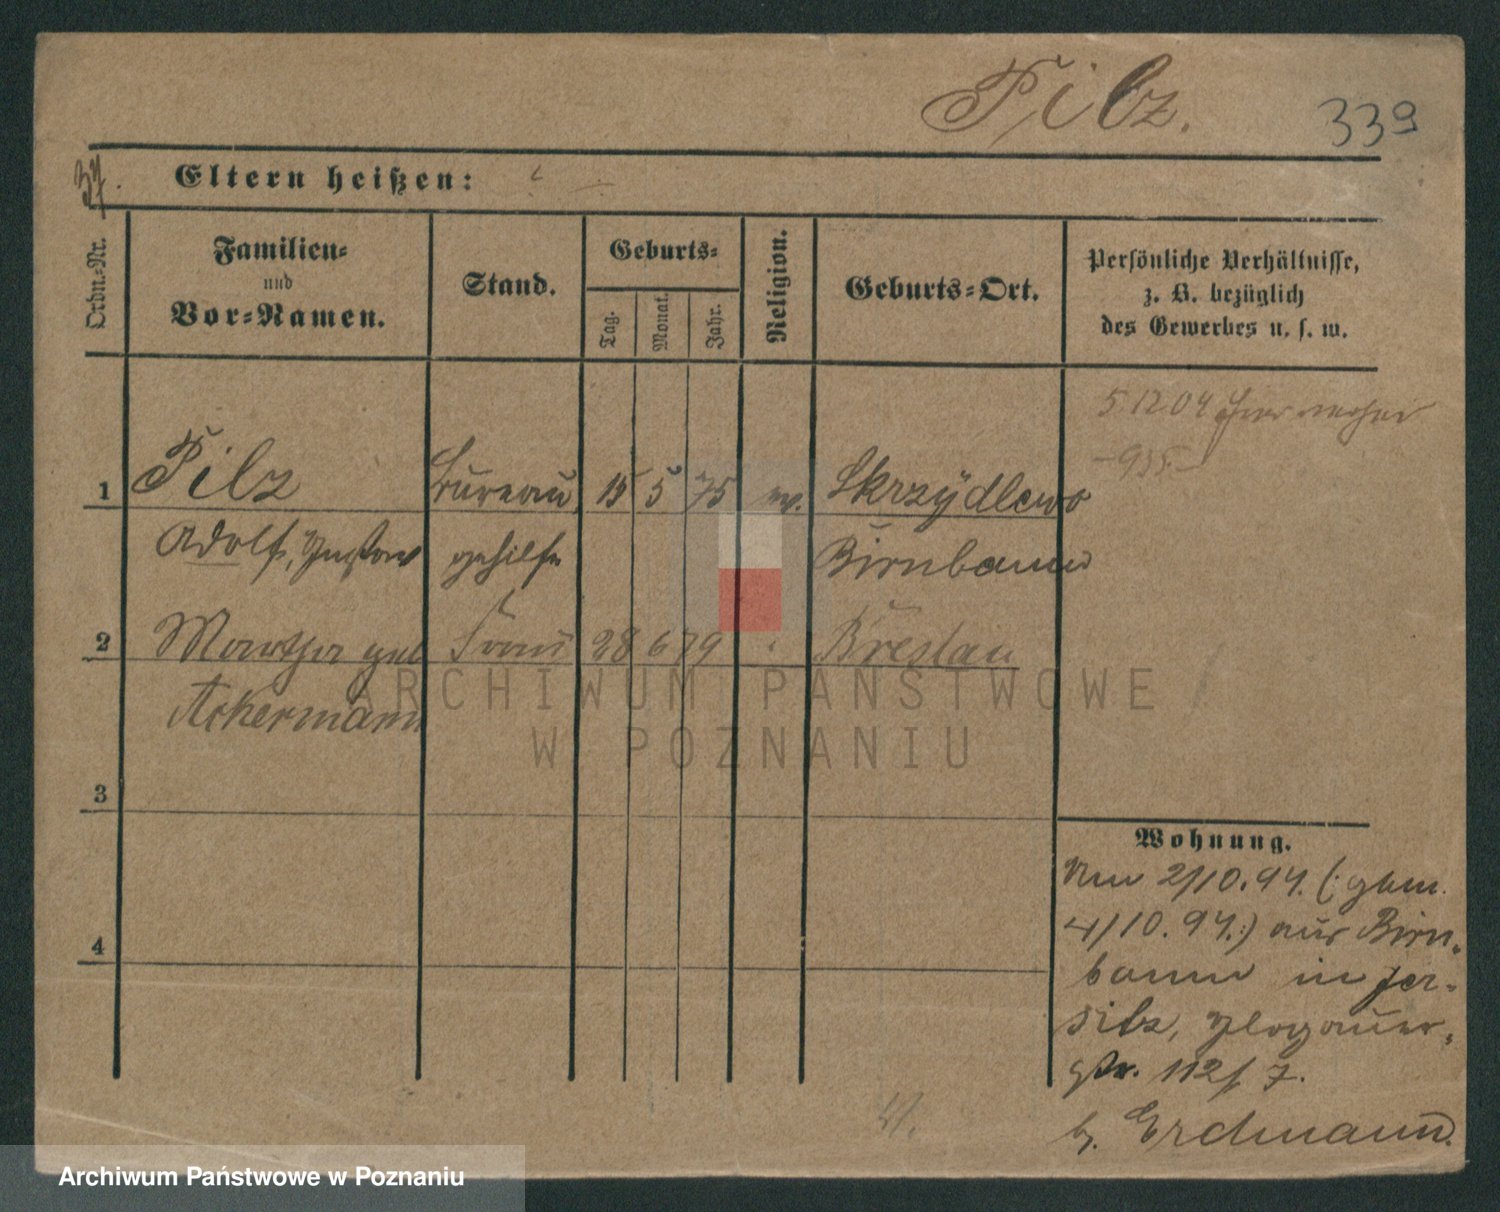 Pilz.
339
37.
Eltern heißen:
Ordn.-Nr.
Familien-
und
Vor-Namen.
Stand.
Geburts-
Tag.
Monat.
Jahr.
Religion.
Geburts-Ort.
Persönliche Verhältnisse,
z. B. bezüglich
des Gewerbes u. s. w.
5.12.04
1
Pilz
Büreau
15
5
75
ev.
Skrzÿdlewo
Adolf, Gustav
gehilfe
Birnbaum
2
Martha geb
Frau
28
6
79
Breslau
Ackermann
ARCHIWUM PAŃSTWOWE
W POZNANIU
3
4
Wohnung.
Am 2/10.94. (: gem.
4/10.94.:) aus Birn-
baum in Jer-
sitz, Glogauer-
str. 112/7.
b. Erdmann.
Archiwum Państwowe w Poznaniu